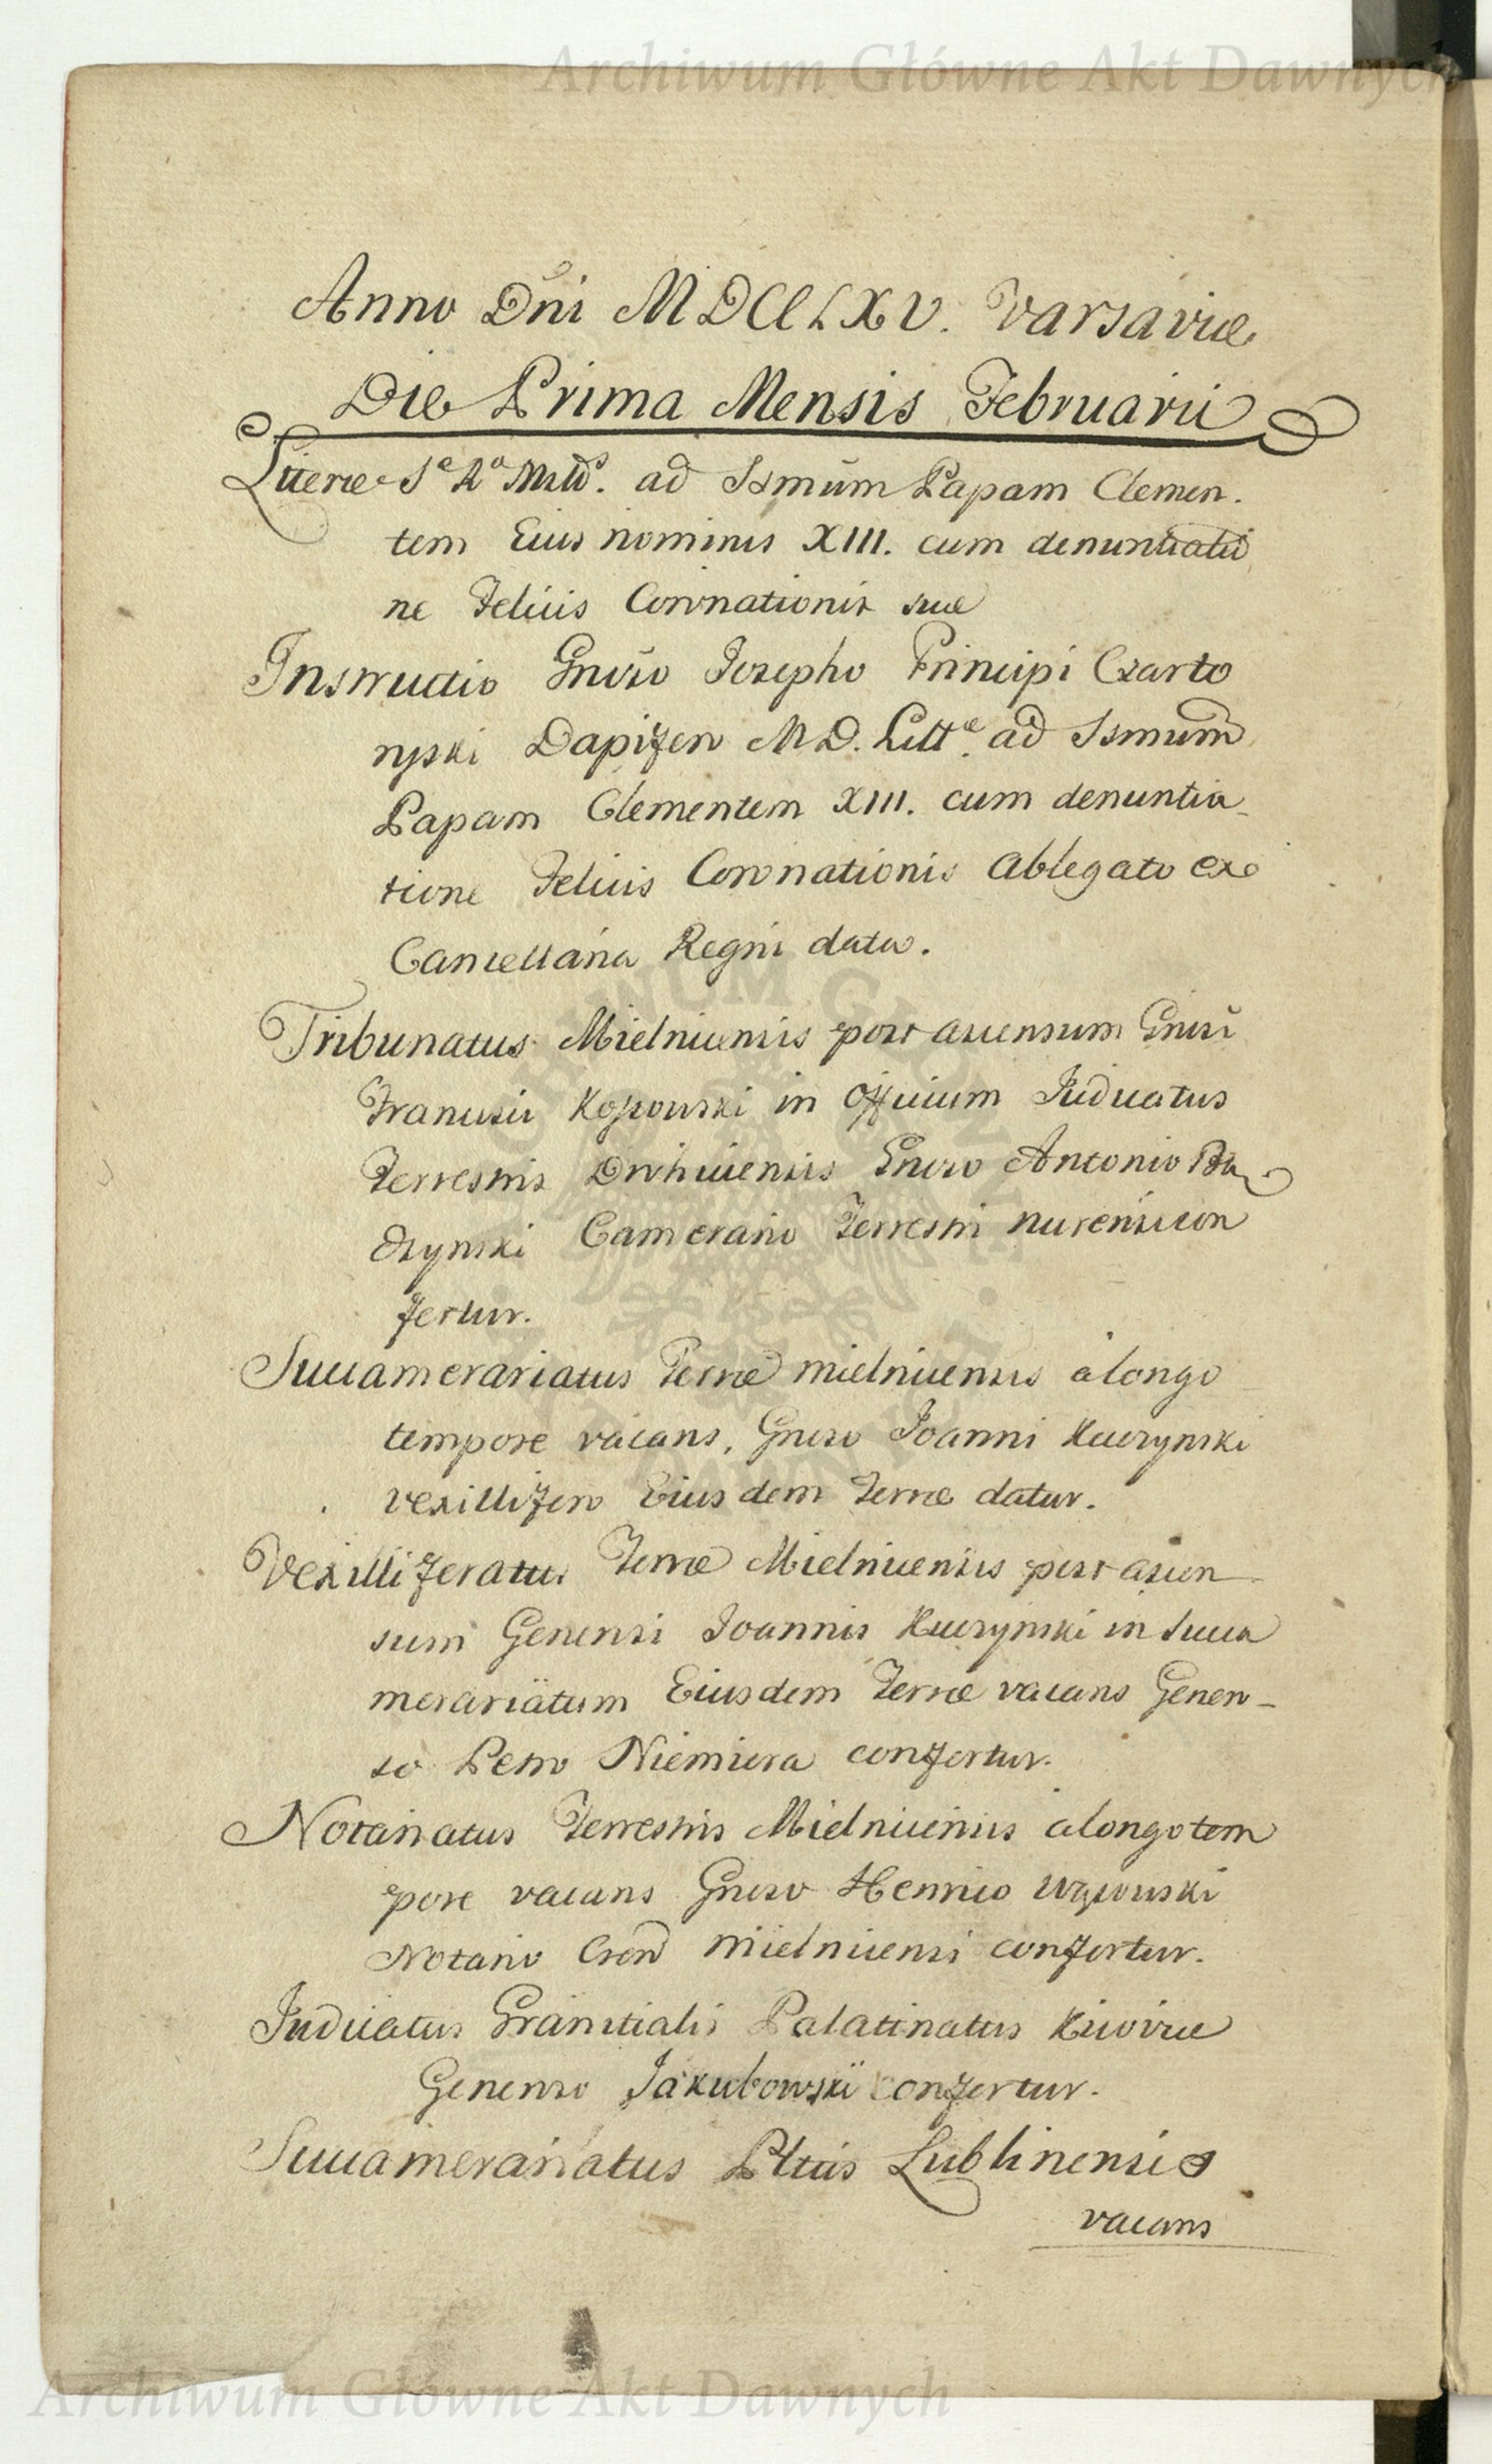 Archiwum Główne Akt Dawnych
Anno Dni MDCCLXV. Varsaviæ
Die Prima Mensis Februarii
Literæ Sæ Ræ Mttis. ad Ssmum Papam Clemen.
tem Eius nominis XIII. cum denuntiatio
ne Felicis Coronationis suæ
Instructio Gnoso Josepho Principi Czarto
ryski Dapifero M D. Littæ. ad Ssmum
Papam Clementem XIII. cum denuntia-
tione Felicis Coronationis Ablegato ex
Cancellaria Regni data.
Tribunatus Mielnicensis post ascensum Gnosi
Francisci Kossowski in Officium Judicatus
Terrestris Drohicensis Gnoso Antonio Bu
dzynski Camerario Terrestri nurensi con
fertur.
Succamerariatus Terræ mielnicensis a longo
tempore vacans, Gnoso Joanni Kuczynski
vexillifero Eiusdem Terræ datur.
Vexilliferatus Terræ Mielnicensis post ascen
sum Generosi Joannis Kuczynski in succa
merariatum Eiusdem Terræ vacans Genero-
so Petro Niemiera confertur.
Notariatus Terrestris Mielnicensis a longo tem
pore vacans Gnoso Henrico
Notario Cren mielnicensi confertur.
Judicatus Granitialis Palatinatus Kiioviæ
Generoso Jakubowski confertur.
Succamerariatus Pltus Lublinensis
vacans
Archiwum Główne Akt Dawnych